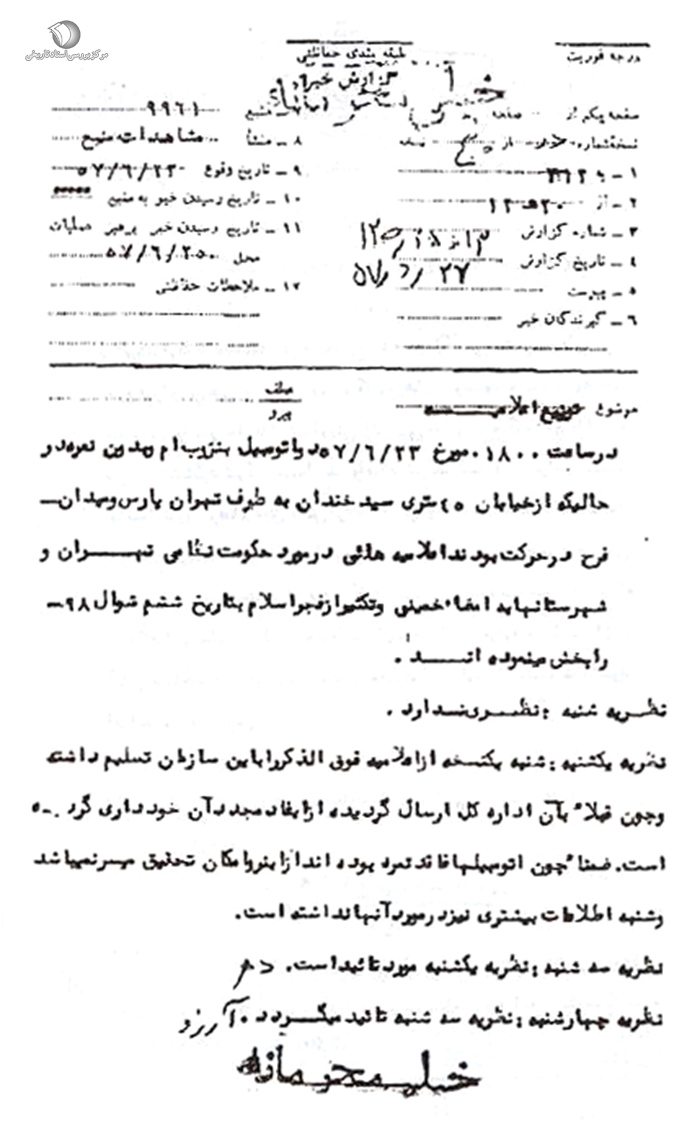 مرکز بررسی اسناد تاریخی
درجه فوریت
طبقه بندی حفاظتی
گزارش خبر
صفحه یکم از صفحه
نسخه شماره از صفحه
۱ ــ به ۳۱۲
۲ ــ از ۲۰ ه ۱۲
۳ ــ شماره گزارش
۴ ــ تاریخ گزارش ۲۷
۵ ــ پیوست
۶ ــ گیرندگان خبر
۷ ــ منبع ۹۹۶۱
۸ ــ منشأ مشاهدات منبع
۹ ــ تاریخ وقوع ۵۷/۶/۲۳
۱۰ ــ تاریخ رسیدن خبر به منبع
۱۱ ــ تاریخ رسیدن خبر برهبر عملیات
محل ۵۷/۶/۲۵
۱۲ ــ ملاحظات حفاظتی
موضوع توزیع اعلامیه
عطف
پیرو
در ساعت ۱۸۰۰ مورخ ۵۷/۶/۲۳ دو اتومبیل بنز و ب ام و بدون نمره در
حالیکه از خیابان ۴۵ متری سید خندان به طرف تهران پارس و میدان ــ
فرح در حرکت بودند اعلامیه هائی در مورد حکومت نظامی تهران و
شهرستانها به امضاء خمینی و تکثیر از فجر اسلام بتاریخ ششم شوال ۹۸ ــ
را پخش مینموده اند .
نظریه شنبه : نظری ندارد .
نظریه یکشنبه : شنبه یکنسخه از اعلامیه فوق الذکر را باین سازمان تسلیم داشته
وچون قبلاً بآن اداره کل ارسال گردیده از ایفاد مجدد آن خودداری گرد ــ ه
است. ضمناً چون اتومبیلها فاقد نمره بوده اند از اینرو امکان تحقیق میسر نمیباشد
وشنبه اطلاعات بیشتری نیز در مورد آنها نداشته است.
نظریه سه شنبه : نظریه یکشنبه مورد تائید است.
نظریه چهارشنبه : نظریه سه شنبه تائید میگردد . آرزو
خیلی محرمانه